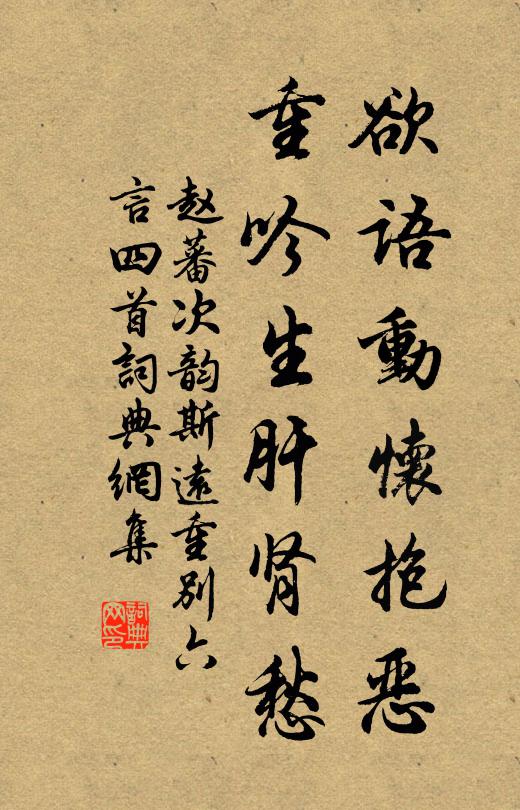 欲語動懷抱惡
重吟生肝肾愁
赵蕃次韵斯遠重别六
言四首詞典網集
詞典网印